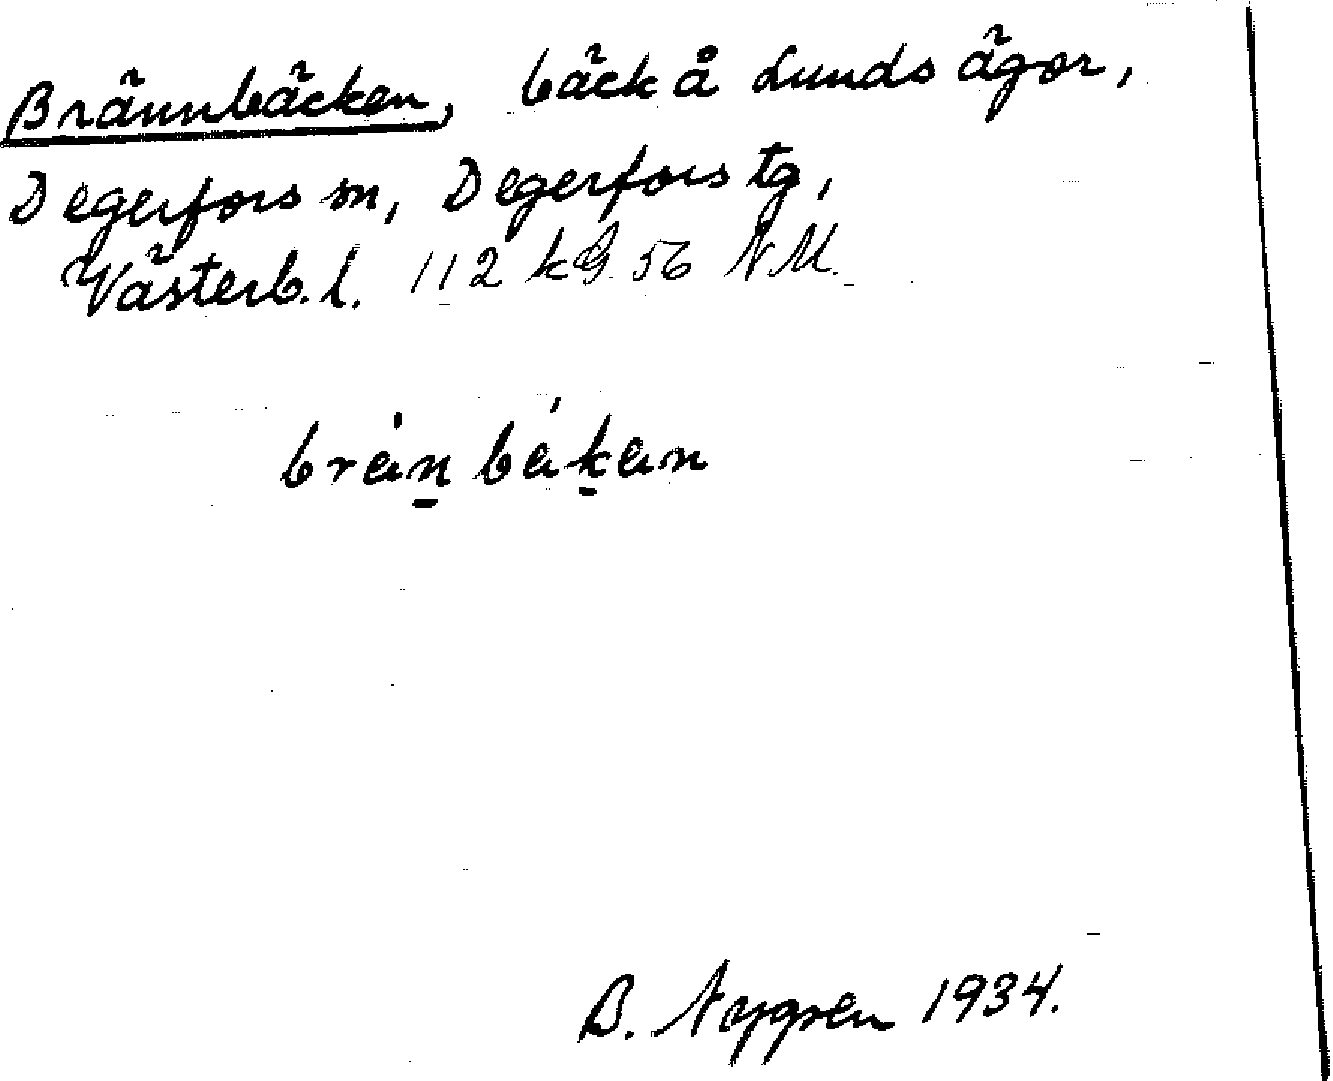 Brännbäcken, bäck å Lunds ägor,
Degerfors sn, Degerfors tg,
Västerb. l. 112 kg 56 NM.
brän bäkæn
B. Nygren 1934.